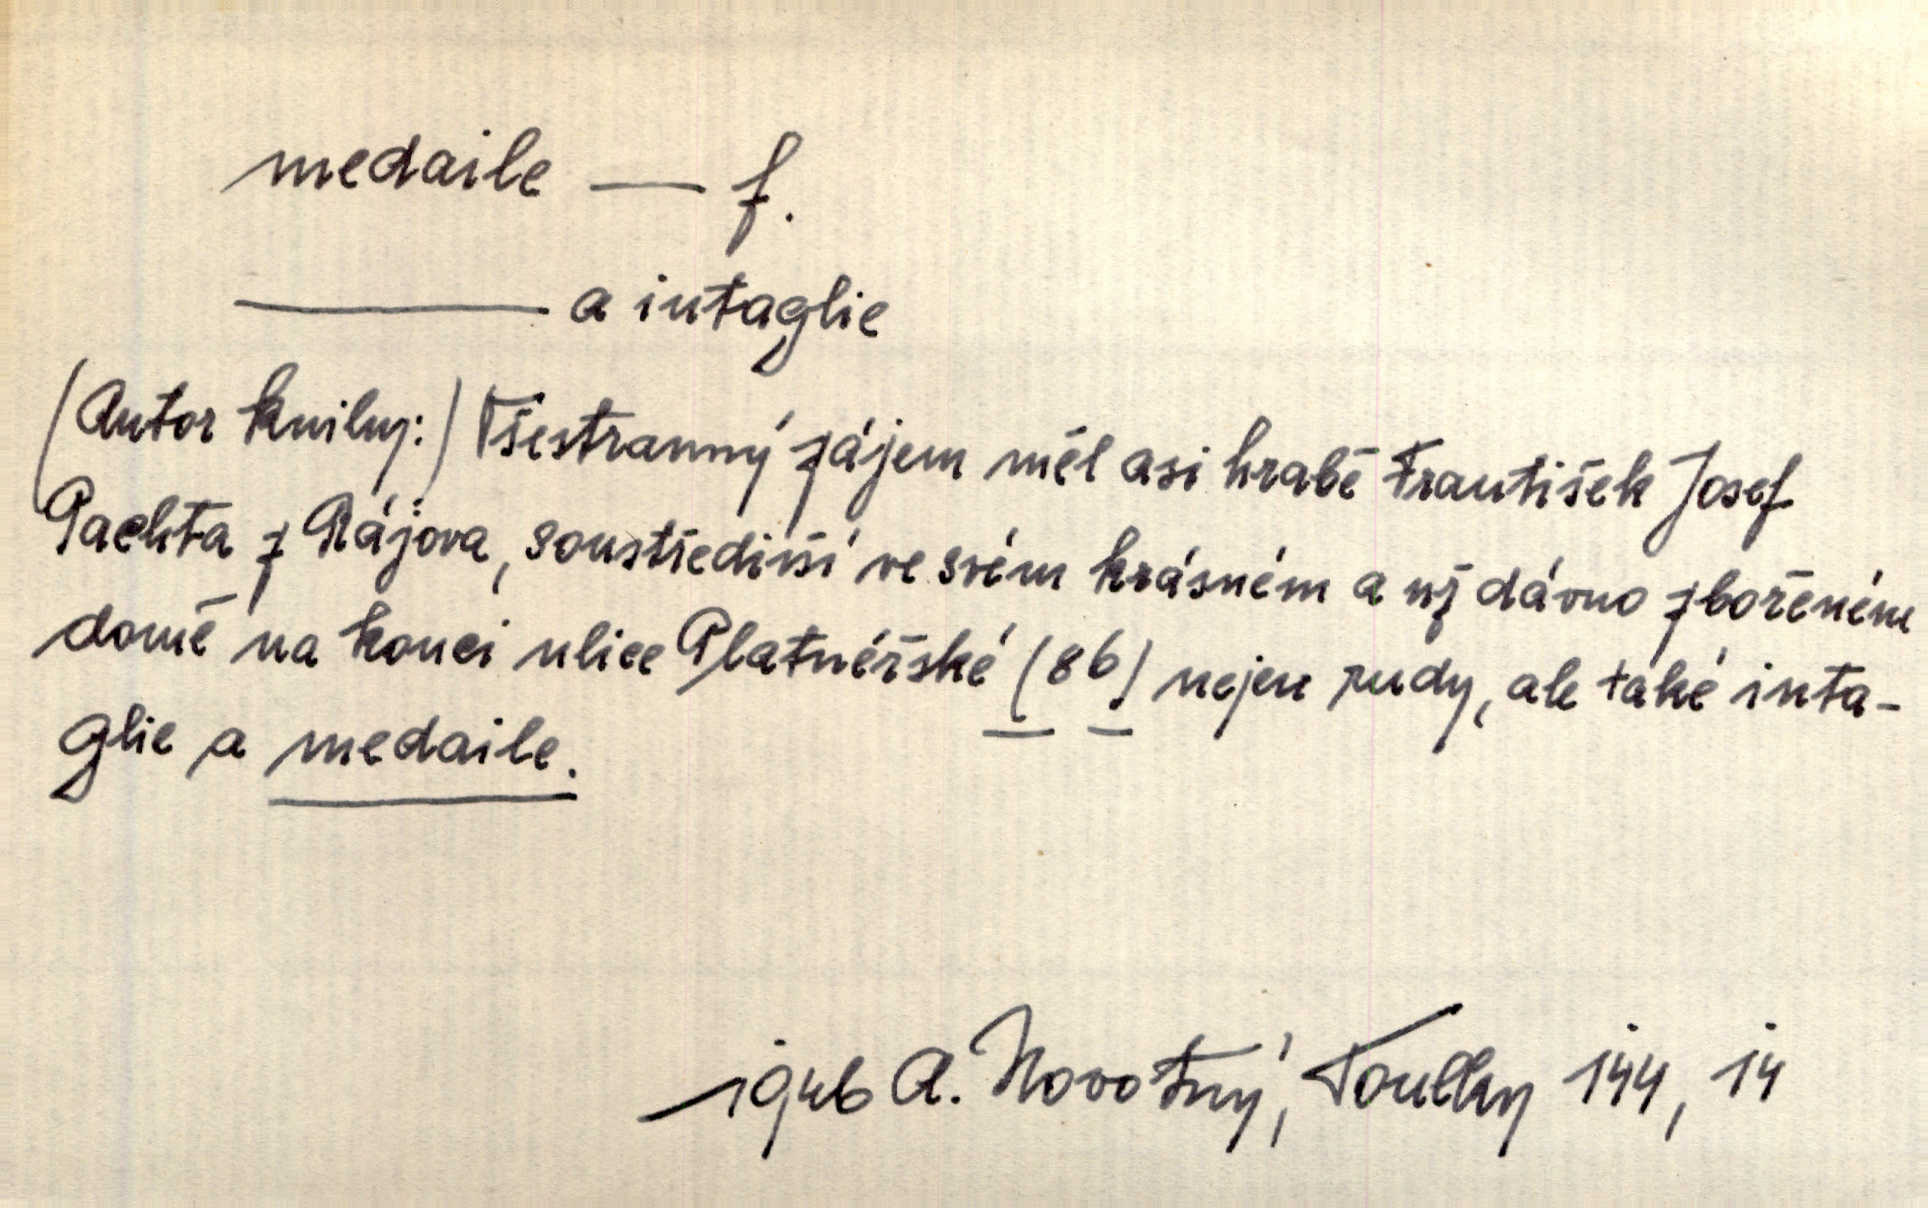 medaile — f.
——— a intaglie
(Autor knihy:) Všestranný zájem měl asi hrabě František Josef
Pachta z Rájova, soustředivší ve svém krásném a už dávno zbořeném
domě na konci ulice Platnéřské (86) nejen rudy, ale také inta-
glie a medaile.
1946 A. Novotný, Toulky 144, 14